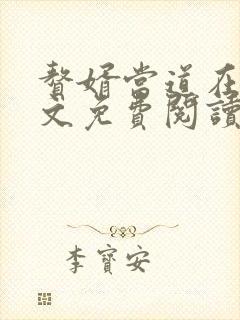 贅婿當道在
文免費閱讀
李寶安